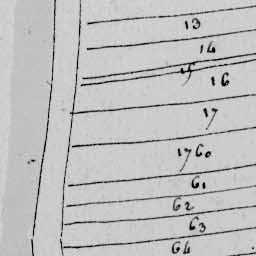 13
14
15
16
17
1760
61
62
63
64